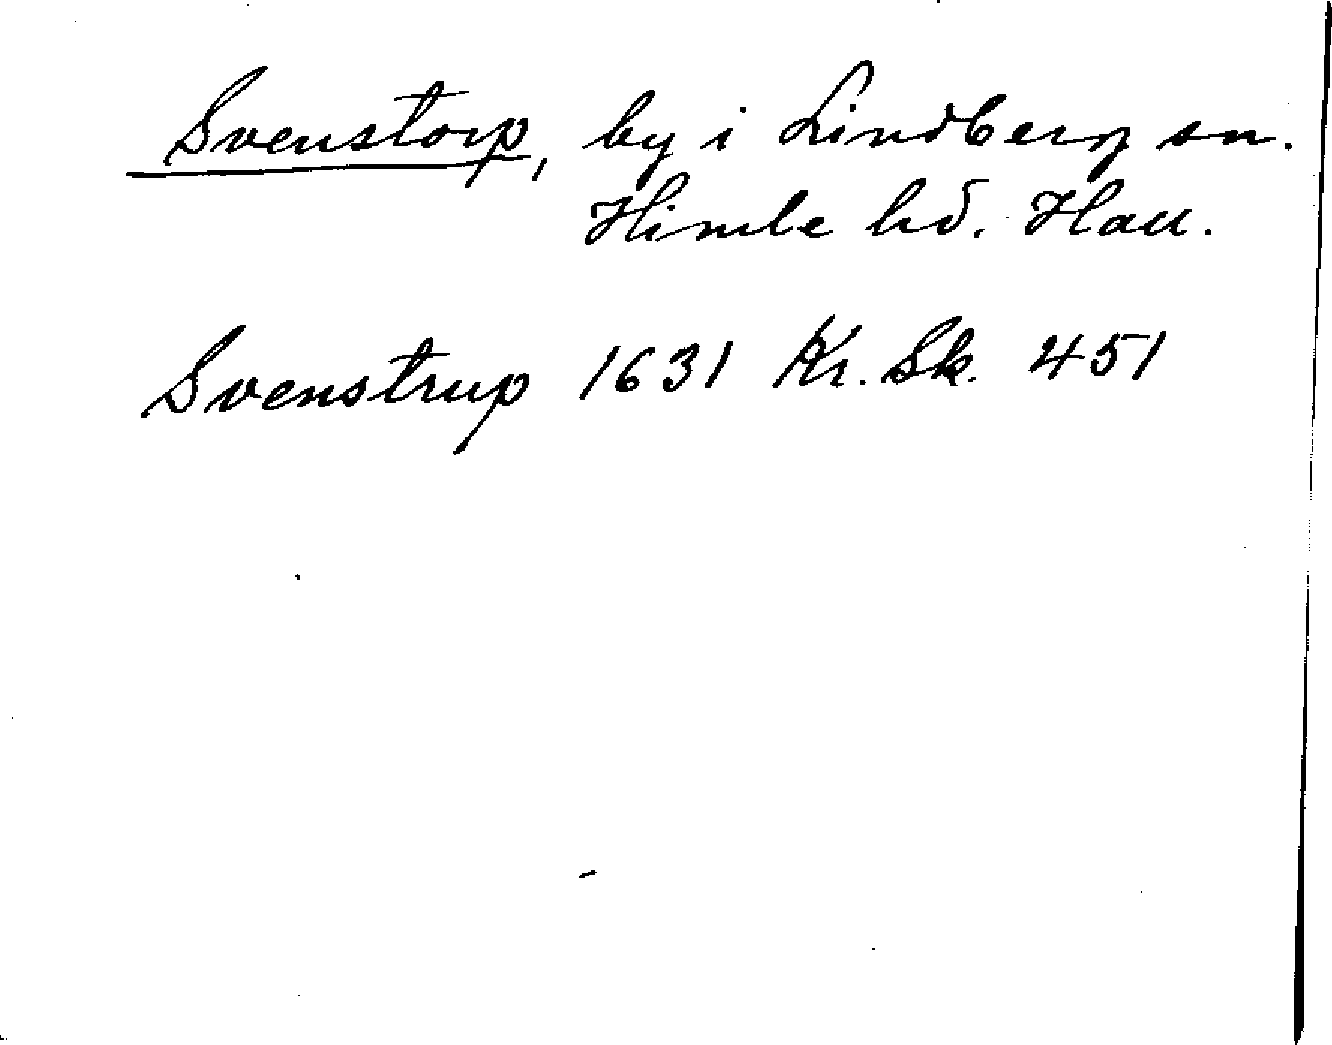 Svenstorp, by i Lindberg sn.
Himle hd. Hall.
Svenstrup 1631 Kr. Sk. 451